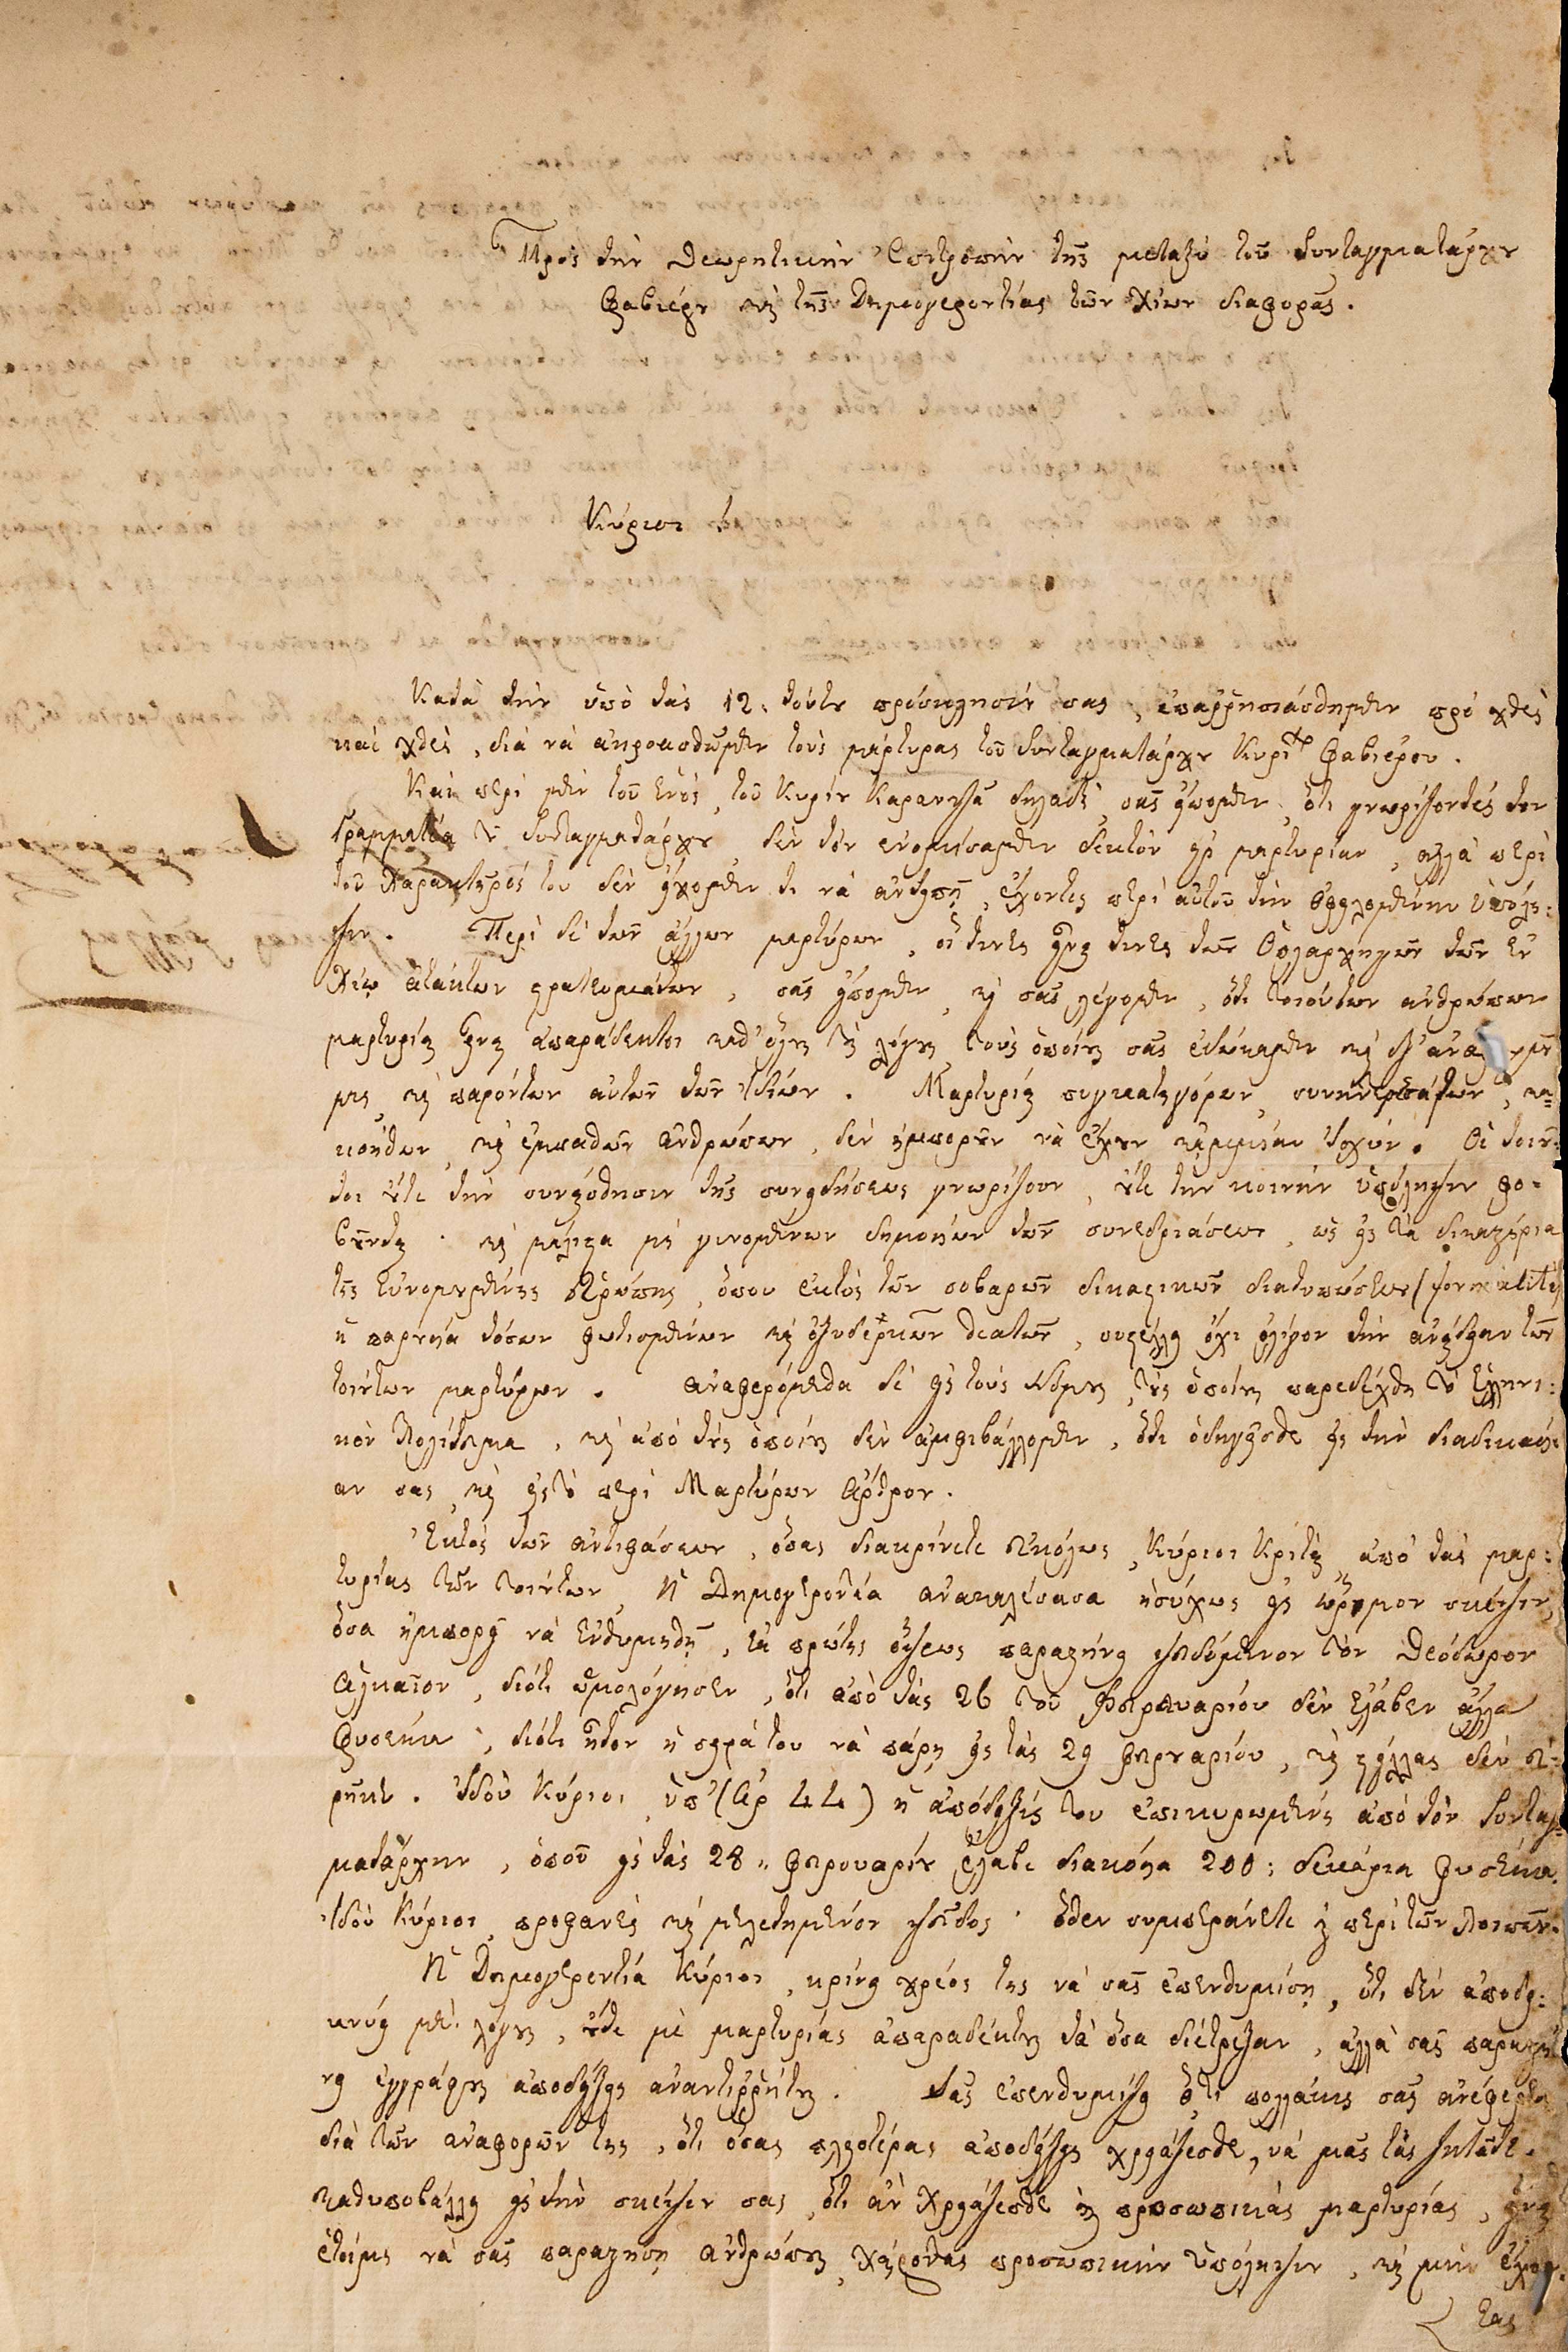 Πρὸς τὴν Θεωρητικὴν Ἐπιτροπὴν τῆς μεταξὺ τοῦ Συνταγματάρχου
Φαβιέρου καὶ τῆς Δημογεροντίας τῶν Χίων διαφορᾶς.
Κύριοι!
Κατὰ τὴν ὑπὸ τὰς 12: τούτου πρόσκλησίν σας, ἐπαρρησιάσθημεν πρὸ χθὲς
καὶ χθὲς, διὰ νὰ ἀκροασθῶμεν τοὺς μάρτυρας τοῦ Συνταγματάρχου Κυρίου Φαβιέρου.
Καὶ περὶ μὲν τοῦ ἑνὸς, τοῦ Κυρίου Καρατζᾶ δηλαδὴ, σᾶς εἴπομεν, ὅτι γνωρίζοντές τον
Γραμματέα τοῦ Συνταγματάρχου δὲν τὸν ἐνομίσαμεν δεκτὸν εἰς μαρτυρίαν, ἀλλὰ περὶ
τοῦ χαρακτῆρός του δὲν ἔχομεν τι νὰ ἀντείπωμεν, ἔχοντες περὶ αὐτοῦ τὴν ὀφειλομένην ὑπόλη:
ψιν. Περὶ δὲ τῶν ἄλλων μαρτύρων, οἵ τινες εἶναι τινὲς τῶν Ὁπλαρχηγῶν τῶν ἐν
Χίῳ ἀτάκτων στρατευμάτων, σᾶς εἴπομεν, καὶ σᾶς λέγομεν, ὅτι τοιούτων ἀνθρώπων
μαρτυρίαι εἶναι ἀπαράδεκτοι καθ' ὅλους τοὺς λόγους, τοὺς ὁποίους σᾶς ἐδώκαμεν καὶ
μας, καὶ παρόντων αὐτῶν τῶν ἰδίων. Μαρτυρίαι συγκατηγόρων, συνυπερασπιστῶν, κα:
κούθων, καὶ ἐμπαθῶν ἀνθρώπων, δὲν ἠμποροῦν νὰ ἔχουν καμμίαν ἰσχύν. Οἱ τοιοῦ:
τοι οὔτε τὴν συναίσθησιν τῆς συνειδήσεως γνωρίζουν, οὔτε τὴν κοινὴν ὑπόληψιν φο:
βοῦνται· καὶ μάλιστα μὴ γινομένων δημοσίων τῶν συνεδριάσεων, ὡς εἰς τὰ δικαστήρια
τῆς εὐνομουμένης Εὐρώπης, ὅπου ἐκτὸς τῶν σοβαρῶν δικαστικῶν διατυπώσεων (formalités)
ἡ παρουσία τόσων φωτισμένων καὶ ὀξυδερκῶν θεατῶν, συστέλλει ὄχι ὀλίγον τὴν ἀναίδειαν τῶν
τοιούτων μαρτύρων. Ἀναφερόμεθα δὲ εἰς τοὺς Νόμους, τοὺς ὁποίους παρεδέχθη τὸ Ἑλληνι:
κὸν Πολίτευμα, καὶ ἀπὸ τοὺς ὁποίους δὲν ἀμφιβάλλομεν, ὅτι ὁδηγεῖσθε εἰς τὴν διαδικασί
αν σας, καὶ εἰς τὸ περὶ Μαρτύρων Ἄρθρον.
Ἐκτὸς τῶν ἀντιφάσεων, ὅσας διακρίνετε εὐκόλως, Κύριοι Κριταὶ, ἀπὸ τὰς μαρ:
τυρίας τῶν τοιούτων, ἡ Δημογεροντία ἀνακαλέσασα ἡσύχως εἰς ὥριμον σκέψιν,
ὅσα ἠμπορεῖ νὰ ἐνθυμηθῇ, ἐκ πρώτης ὄψεως παραστήνει ψευδόμενον τὸν Θεόδωρον
διότι ὡμολόγησεν, ὅτι ἀπὸ τὰς 26 τοῦ Φεβρουαρίου δὲν ἔλαβεν ἄλλα
φυσέκια, διότι ἦτον ἡ σειρά του νὰ πάρῃ εἰς τὰς 29 Φεβρουαρίου, καὶ
Ἰδοὺ Κύριοι, ὑπ' (Ἀρ 44) ἡ ἀπόδειξίς του ἐπικυρωμένη ἀπὸ τὸν Συνταγ:
ματάρχην, ὁποῦ εἰς τὰς 28 " Φεβρουαρίου ἔλαβε διακόσια 200: δεκάρια φυσέκια.
Ἰδοὺ Κύριοι, προφανὲς καὶ μελετημένον ψεῦδος· ὅθεν συμπεράνετε καὶ περὶ τῶν λοιπῶν.
Ἡ Δημογεροντία Κύριοι, κρίνει χρέος της νὰ σᾶς ἐπενθυμίσῃ, ὅτι δὲν ἀποδει:
κνύει μὲ λόγους, οὔτε μὲ μαρτυρίας ἀπαραδέκτους τὰ ὅσα διέτρεξαν, ἀλλὰ σᾶς παραστή
νει ἐγγράφους ἀποδείξεις ἀναντιῤῥήτους. Σᾶς ἐπενθυμίζει ὅτι πολλάκις σᾶς ἀνέφερε
διὰ τῶν ἀναφορῶν της, ὅτι ὅσας πλειοτέρας ἀποδείξεις χρειάζεσθε, νὰ μᾶς τὰς ζητῆτε.
Καθυποβάλλει εἰς τὴν σκέψιν σας, ὅτι ἂν χρειάζεσθε καὶ προσωπικὰς μαρτυρίας, εἶναι
ἕτοιμος νὰ σᾶς παραστήσῃ ἀνθρώπους, χαίροντας προσωπικὴν ὑπόληψιν, καὶ μὴν ἔχον:
τας